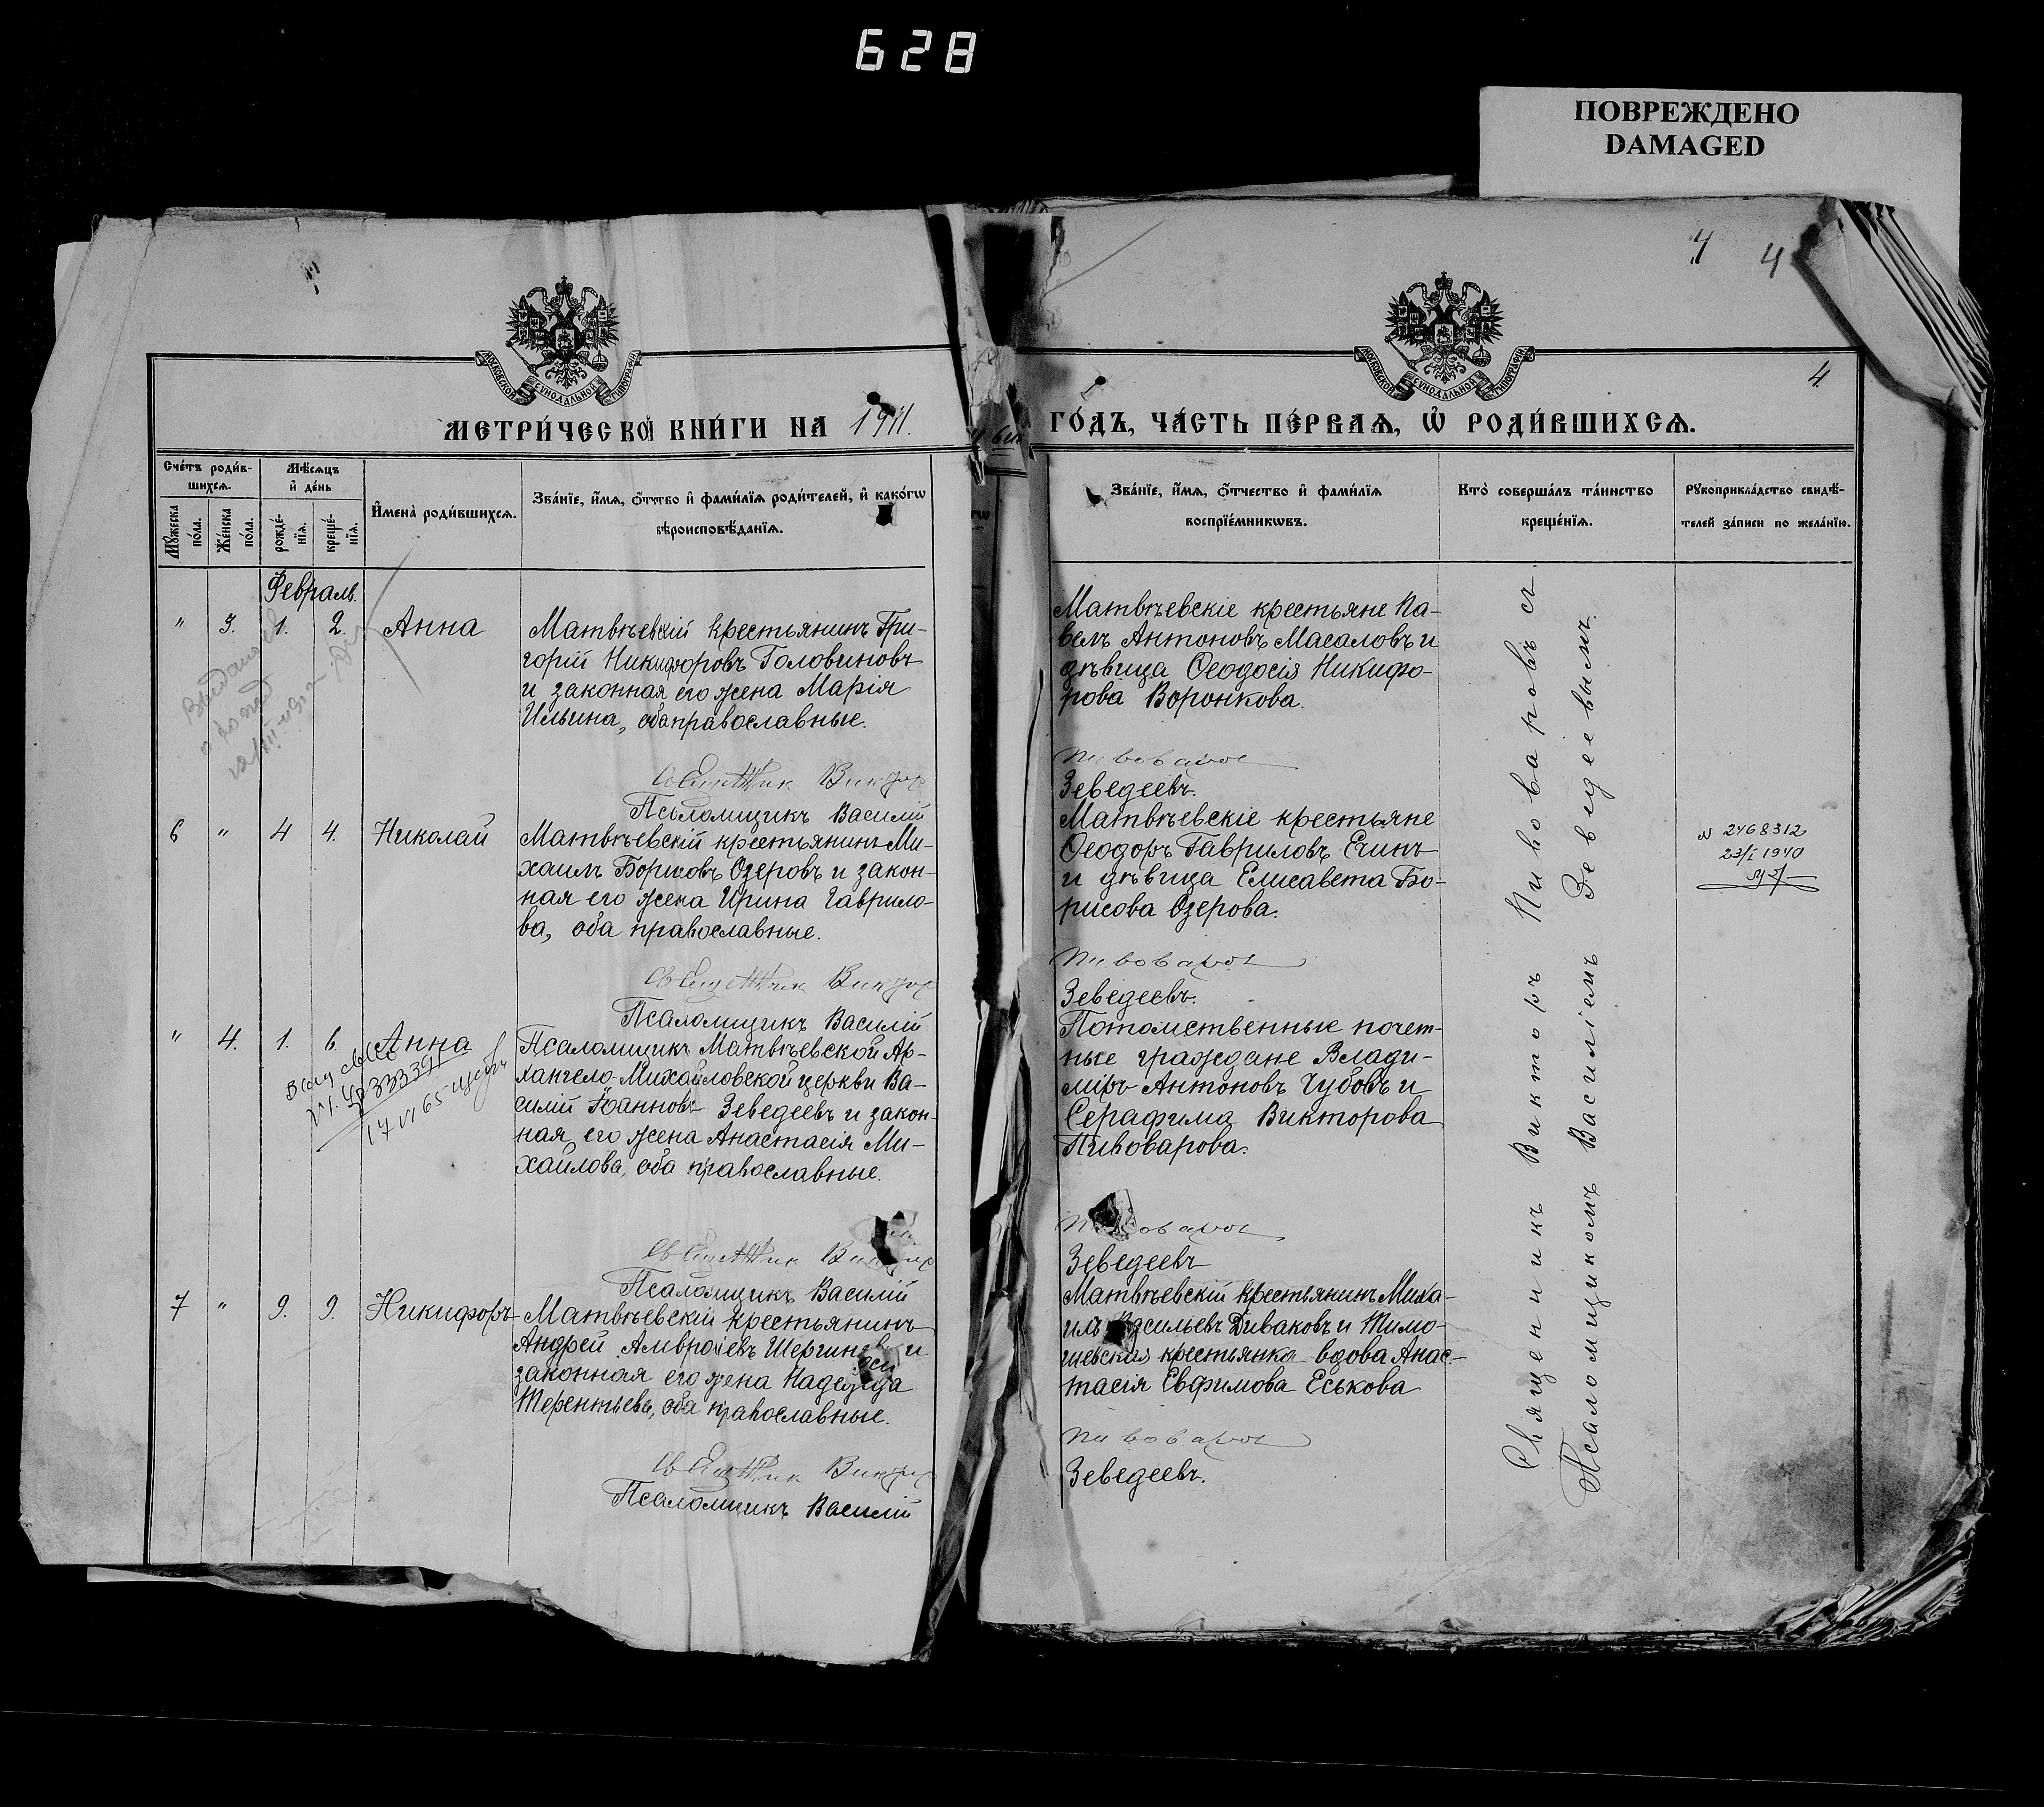 628
ПОВРЕЖДЕНО
DAMAGED
4 4
МОСКОВСКОЙ СѴНОДАЛЬНОЙ ТИПОГРАФІИ
МОСКОВСКОЙ СѴНОДАЛЬНОЙ ТИПОГРАФІИ
4.
МЕТРИ́ЧЕСКОЙ КНИ́ГИ НА 1911.
ГО́ДЪ, ЧА́СТЬ ПЕ́РВАѦ, Ѽ РОДИ́ВШИХСѦ.
Сче́тъ роди́в-
шихсѧ.
Мꙋ́жеска
по́ла.
Же́нска
по́ла.
Мѣ́сѧцъ
и҆ де́нь
рожде́-
нїѧ.
креще́-
нїѧ.
И҆мена̀ роди́вшихсѧ.
Зва́нїе, и҆́мѧ, ѻ҆́тчество и҆ фами́лїѧ роди́телей, и҆ како́гѡ
вѣроисповѣ́данїѧ.
Зва́нїе, и҆́мѧ, ѻ҆́тчество и҆ фами́лїѧ
воспрїе́мникѡвъ.
Кто̀ соверша́лъ та́инство
креще́нїѧ.
Рꙋкоприкла́дство свидѣ́-
телей за́писи по жела́нїю.
Февраль.
" 3. 1. 2. Анна
Матвѣевскій крестьянинъ Гри-
горій Никифоровъ Головиновъ
и законная его жена Марія
Ильина, оба православные.
Священник Виктор
Псаломщикъ Василій
Матвѣевскіе крестьяне Па-
велъ Антоновъ Масаловъ и
дѣвица Ѳеодосія Никифо-
рова Воронкова.
Пивоваров
Зеведеевъ.
6 " 4 4. Николай
Матвѣевскій крестьянинъ Ми-
хаилъ Борисовъ Озеровъ и закон-
ная его жена Ирина Гаврило-
ва, оба православные.
Священник Виктор
Псаломщикъ Василій
Матвѣевскіе крестьяне
Ѳеодоръ Гавриловъ Ечинъ
и дѣвица Елисавета Бо-
рисова Озерова.
Пивоваров
Зеведеевъ.
№ 2468312
23/I 1940
" 4. 1. 6. Анна
17 VI 65
Псаломщикъ Матвѣевской Ар-
хангело-Михайловской церкви Ва-
силій Іоанновъ Зеведеевъ и закон-
ная его жена Анастасія Ми-
хайлова, оба православные.
Священник Виктор
Псаломщикъ Василій
Потомственные почет-
ные граждане Влади-
міръ Антоновъ Чубовъ и
Серафима Викторова
Пивоварова.
Пивоваров
Зеведеевъ
7 " 9. 9. Никифоръ
Матвѣевскій крестьянинъ
Андрей Амвросіевъ и
законная его жена Надежда
Терентьева, оба православные.
Священник Виктор
Псаломщикъ Василій
Матвѣевскій крестьянинъ Миха-
илъ Васильевъ Диваковъ и Тимо-
шевская крестьянка вдова Анас-
тасія Евфимова Еськова
Пивоваров
Зеведеевъ.
Священникъ Викторъ Пивоваровъ съ
Псаломщикомъ Василіемъ Зеведеевымъ.